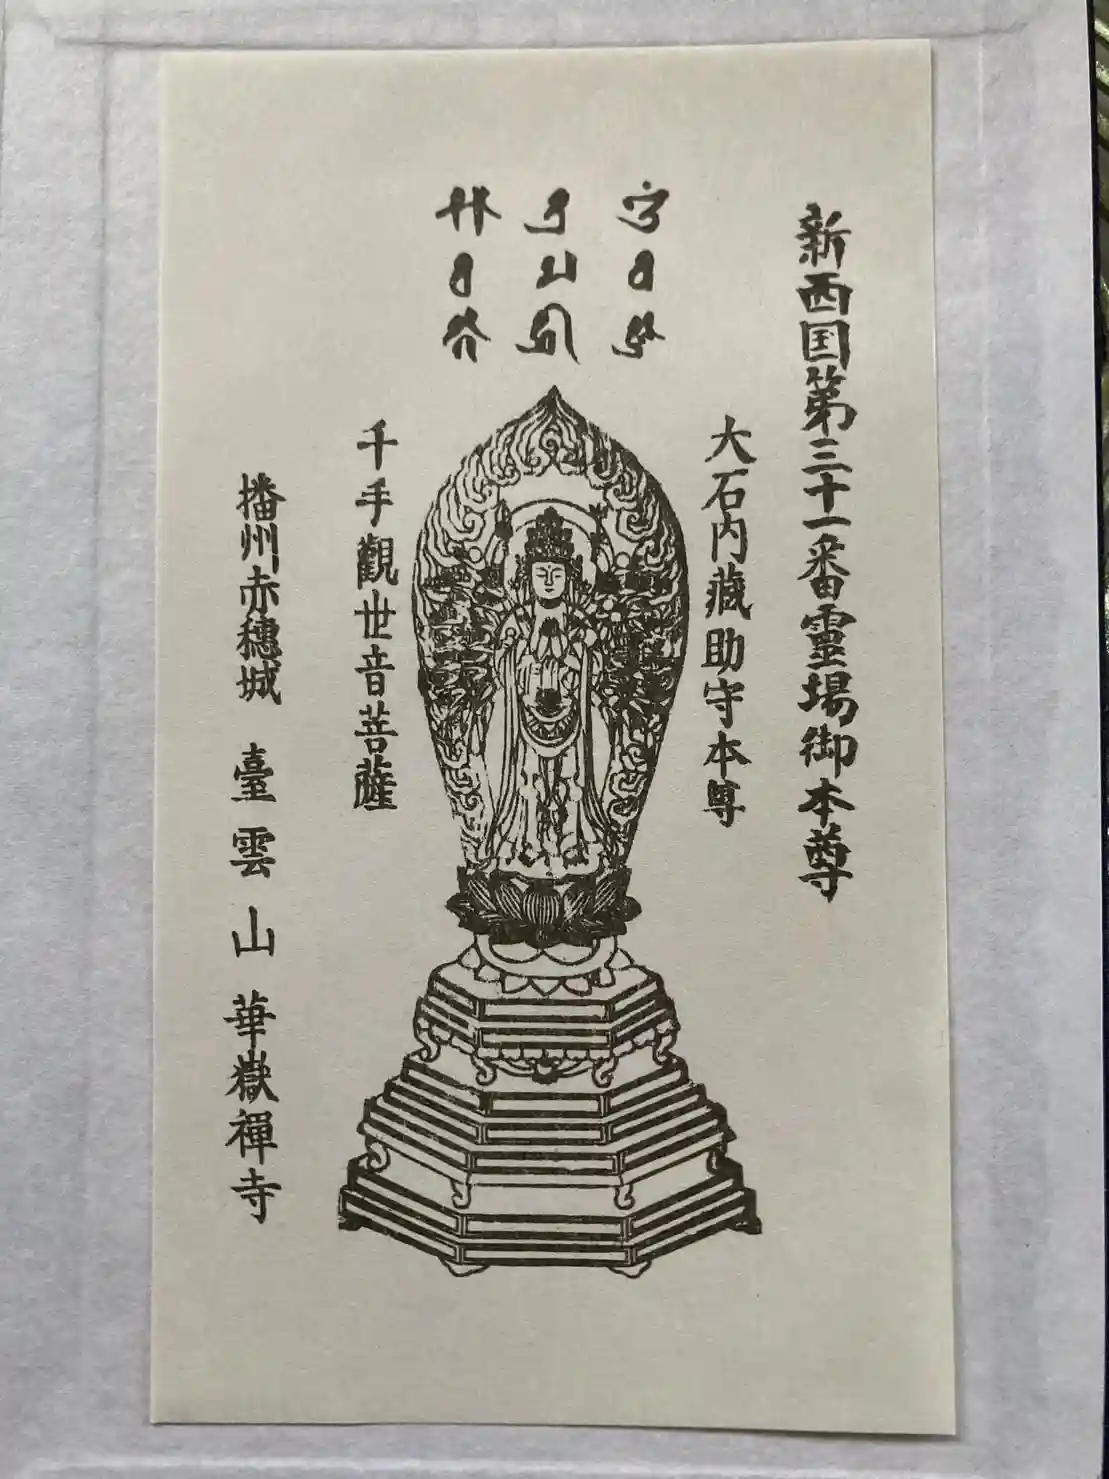 新西国第三十一番靈場御本尊
大石内蔵助守本尊
千手觀世音菩薩
播州赤穂城 臺雲山 華嶽禪寺